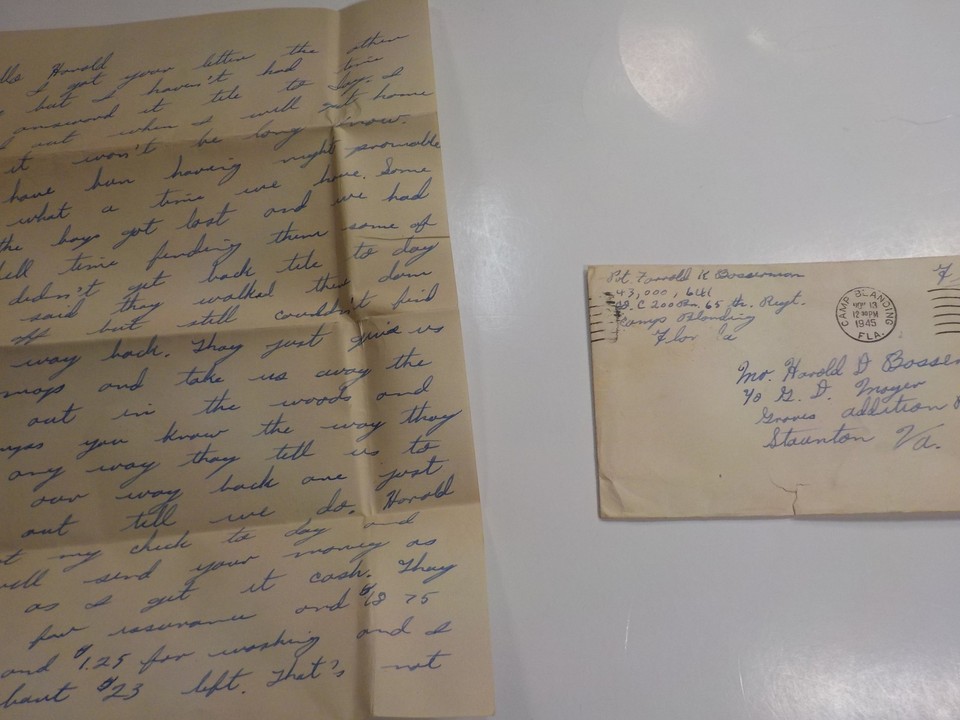 Hello Harold
I got your letter the other
but I haven't had time
answerd it tile to day. I
out when I will get home
it won't be long know.
have bun having night promable
what a time we have. Some
the boys got lost and we had
hell time finding them some of
dedn't get back tile to day
said thay walked them down
off but still couldn't find
way back. Thay just give us
maps and take us away the
out in the woods and
you know the way thay
any way thay tell us to
our way back are just
out till we do. Harold
my check to day and
will send your money as
as I get it cash. Thay
for issurance and $18 75
and $1.25 for washing and I
bout $23 left. That's not
Pvt. Farrold K Bosserman
43,000,641
Co. C 200 Bn. 65 Hr. Regt.
Camp Blanding
Flor a
CAMP BLANDING
13
12 30PM
1945
FLA.
Mr. Harold D Bosser
℅ G. D. Moyer
Groves addition
Staunton Va.